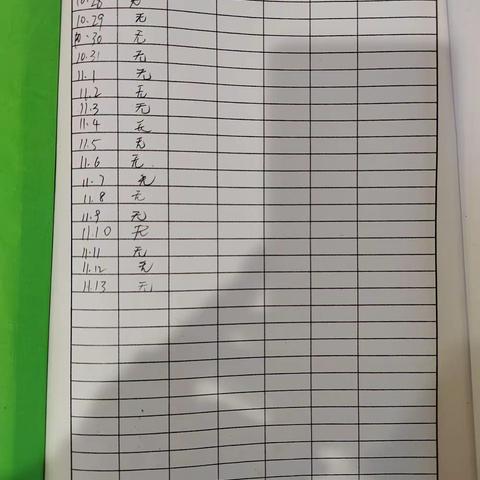 10.28 无
10.29 无
10.30 无
10.31 无
11.1 无
11.2 无
11.3 无
11.4 无
11.5 无
11.6 无
11.7 无
11.8 无
11.9 无
11.10 无
11.11 无
11.12 无
11.13 无